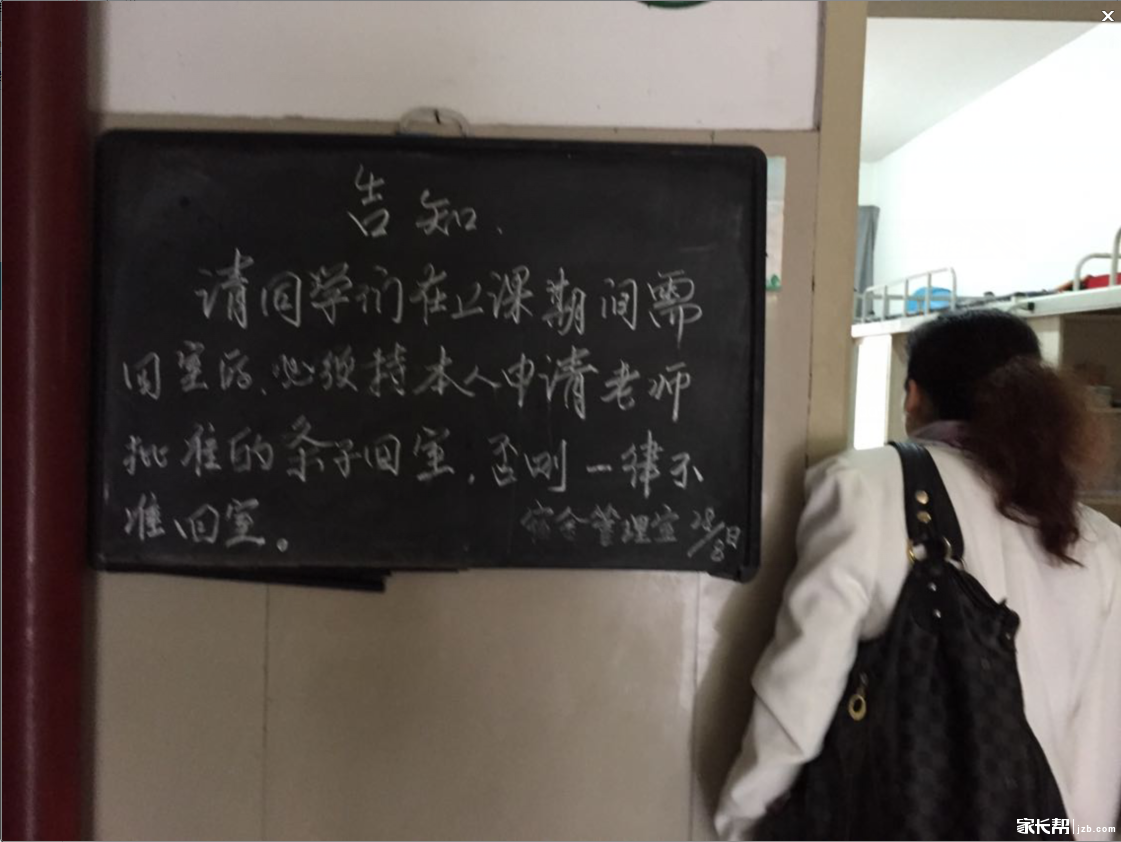 告知.
请同学们在上课期间需
回室的、必须持本人申请老师
批准的条子回室,否则一律不
准回室。
宿舍管理室 28/8日
家长帮 jzb.com